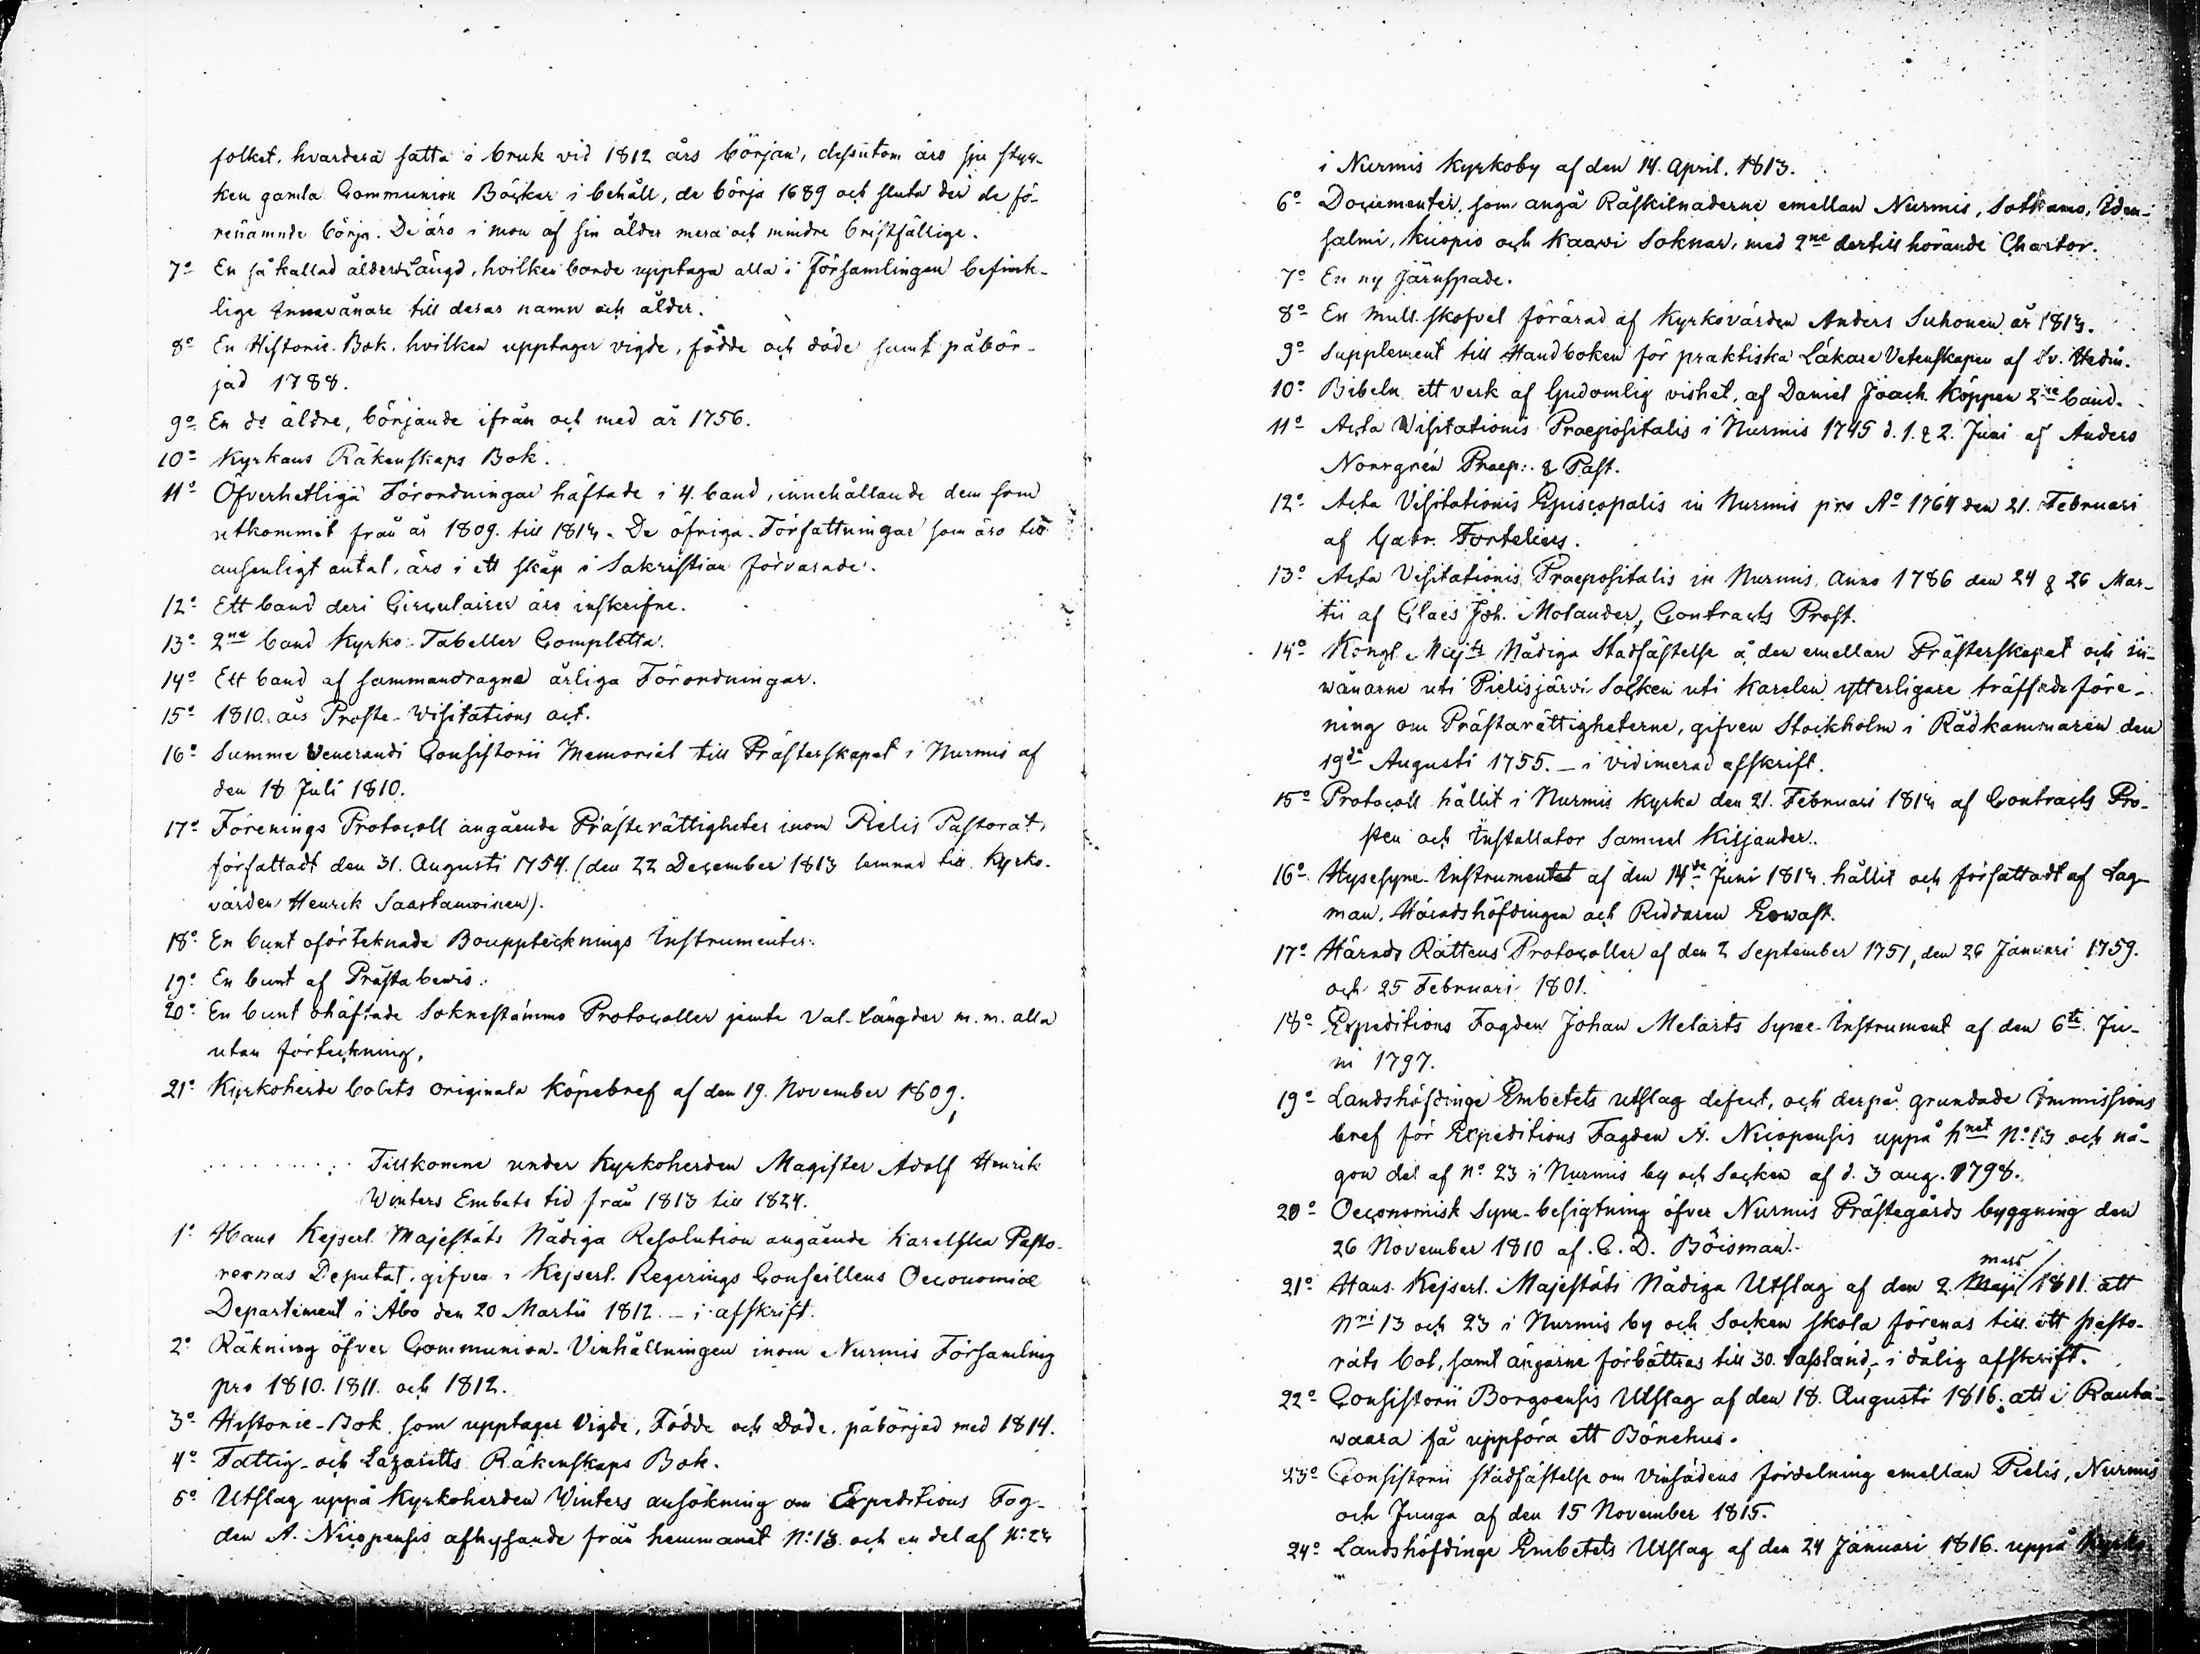 folket, hvardera satta i bruk vid 1812 års början, dessutom äro sju styc-
ken gamla Communion Böcker i behåll, de börja 1689 och sluta der de fö-
renämnde börja. De äro i mon af sin ålder mera och mindre bristfällige.
7º En så kallad ålders Längd, hvilken borde upptaga alla i Församlingen befint-
lige Innevånare till deras namn och ålder.
8º En Historie-Bok, hvilken upptager vigde, födde och döde samt påbör-
jad 1788.
9º En dº äldre, började ifrån och med år 1756.
10º Kyrkans Räkenskaps Bok.
11º Öfverhetliga Förordningar häftade i 4. band, innehållande dem som
utkommit från år 1809. till 1814. De öfriga Författningar som äro till
ansenligt antal, äro i ett skåp i Sakristian förvarade.
12º Ett band deri Circulairer äro inskrifne.
13º 2ne band Kyrko-Tabeller Completta.
14º Ett band af sammandragna årliga Förordningar.
15º 1810. års Proste-Visitations act.
16º Summe Venerandi Consistorii Memorial till Prästerskapet i Nurmis af
den 18 Juli 1810.
17º Förenings Protocoll angående Prästerättigheter inom Pielis Pastorat,
författadt den 31. Augusti 1754. (den 22 December 1813 lemnad till Kyrko-
värden Henrik Saastamoinen).
18º En bunt oförteknade Bouppteknings Instrumenter.
19º En bunt af Prästabewis.
20º En bunt ohäftade Soknestämmo Protocoller jemte Val-Längder m.m. alla
utan förteckning.
21º Kyrkoherde bolets originala Köpebref af den 19. November 1809.
Tillkomne under Kyrkoherden Magister Adolf Henrik
Winters Embets tid från 1813 till 1824.
1º Hans Kejserl. Majestäts Nådiga Resolution angående Karelska Pasto-
rernas Deputat, gifven i Kejserl. Regerings Conseillens Oeconomiæ
Departement i Åbo den 20 Martii 1812. – i afskrift.
2º Räkning öfver Communion-Vinhållningen inom Nurmis Församling
pro 1810. 1811. och 1812.
3º Historie-Bok som upptager Vigde, Födde och Döde, påbörjad med 1814.
4º Fattig- och Lazaretts Räkenskaps Bok.
5º Utslag uppå Kyrkoherden Winters ansökning om Expeditions Fog-
den A. Nicopensis afhysande från hemmanet Nº 13. och en del af Nº 23
i Nurmis Kyrkoby af den 14. April. 1813.
6º Documenter, som angå Råskilnaderne emellan Nurmis, Sotkamo, Iden-
salmi, Kuopio och Kaawi Soknar, med 2ne dertill hörande Chartor.
7º En ny Järnspade.
8º En mull skofvel förärad af Kyrkovärden Anders Suhonen år 1814.
9º Supplement till Handboken för praktiska Läkare Vetenskapen af Sv. Hedin.
10º Bibeln ett verk af Gudomlig vishet, af Daniel Joach. Köppen 2ne band.
11º Acta Visitationis Praepositalis i Nurmis 1745 d. 1. & 2. Juni af Anders
Norrgrén Praep: & Past.
12º Acta Visitationis Episcopalis in Nurmis pro Aº 1764 den 21. Februari
af Gabr. Fortelius.
13º Acta Visitationis Praepositalis in Nurmis Anno 1786 den 24 & 26 Mar-
tii af Claes Joh. Molander, Contracts Prost.
14º Kongl. Maj:ts Nådiga Stadfästelse å den emellan Prästerskapet och in-
wånarne uti Pielisjärvi Socken uti Karelen ytterligare träffade före-
ning om Prästarättigheterne, gifven Stockholm i Rådkammaren den
19de Augusti 1755. – i vidimerad afskrift.
15º Protocoll hållit i Nurmis Kyrka den 21. Februari 1814 af Contracts Pro-
sten och Installator Samuel Kiljander.
16º Hysesyne-Instrumentet af den 14de Juni 1814. hållit och författadt af Lag-
man, Häradshöfdingen och Riddaren Erwast.
17º Härads Rättens Protocoller af den 2 September 1751, den 26 Januari 1759.
och 25 Februari 1801.
18º Expeditions Fogden Johan Melarts Syne-Instrument af den 6te Ju-
ni 1797.
19º Landshöfdinge Embetets Utslag defect, och derpå grundade Immissions
bref för Expeditions Fogden A. Nicopensis uppå hnet Nº 13 och nå-
gon del af Nº 23 i Nurmis by och Socken af d. 3 aug. 1798.
20º Oeconomisk Syne-besigtning öfver Nurmis Prästegårds byggning den
26 November 1810 af C. D. Böisman.
21º Hans Kejserl. Majestäts Nådiga Utslag af den 2. Maji mars 1811. att
Nri 13 och 23 i Nurmis by och Socken skola förenas till ett pasto-
rats bol, samt ängarne förbättras till 30. lassland, – i dålig afskrift.
22º Consistorii Borgoensis Utslag af den 18. Augusti 1816. att i Rauta-
waara få uppföra ett Bönehus.
23º Consistorii stadfästelse om vinsädens fördelning emellan Pielis, Nurmis
och Juuga af den 15 November 1815.
24º Landshöfdinge Embetets Utslag af den 24 Januari 1816. uppå Kyrko